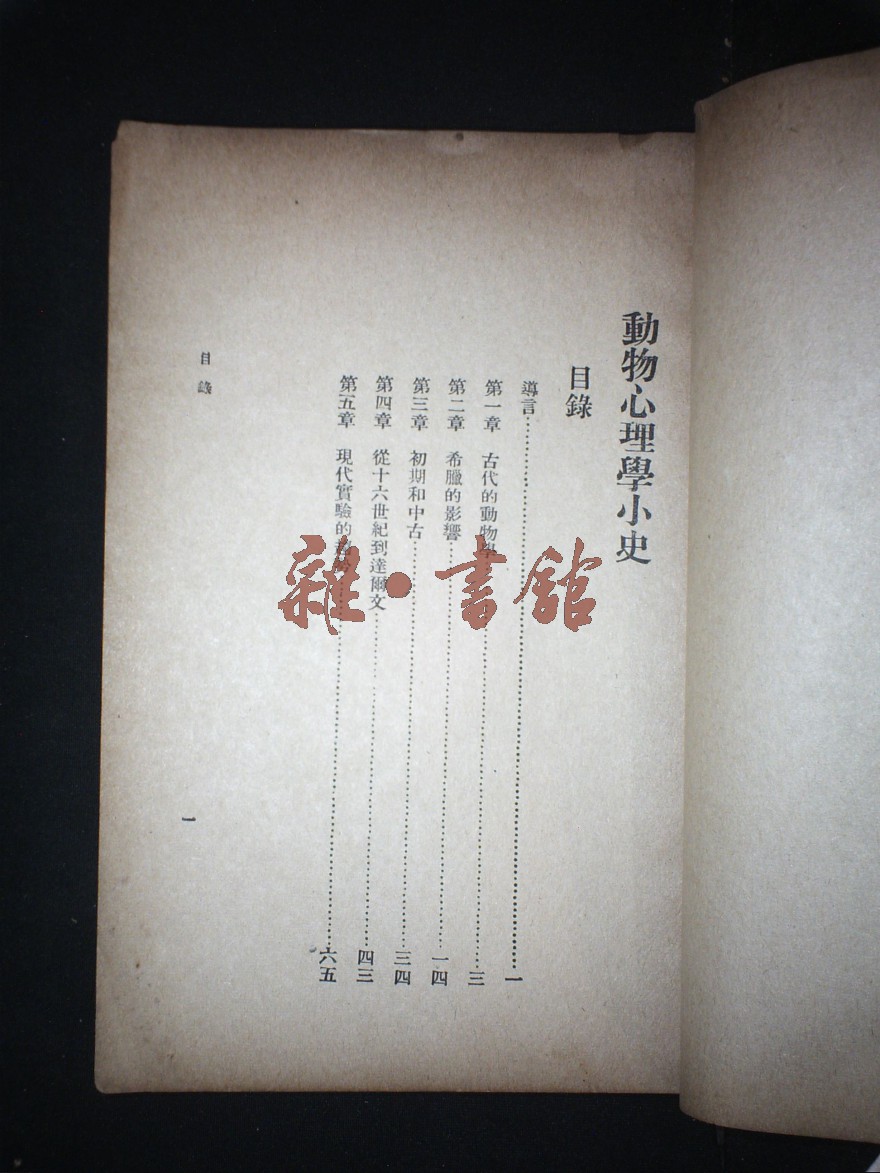 動物心理學小史
目錄
導言……一
第一章 古代的動物學……三
第二章 希臘的影響……一四
第三章 初期和中古……三四
第四章 從十六世紀到達爾文……四三
第五章 現代實驗的……六五
目錄
一
雜·書館